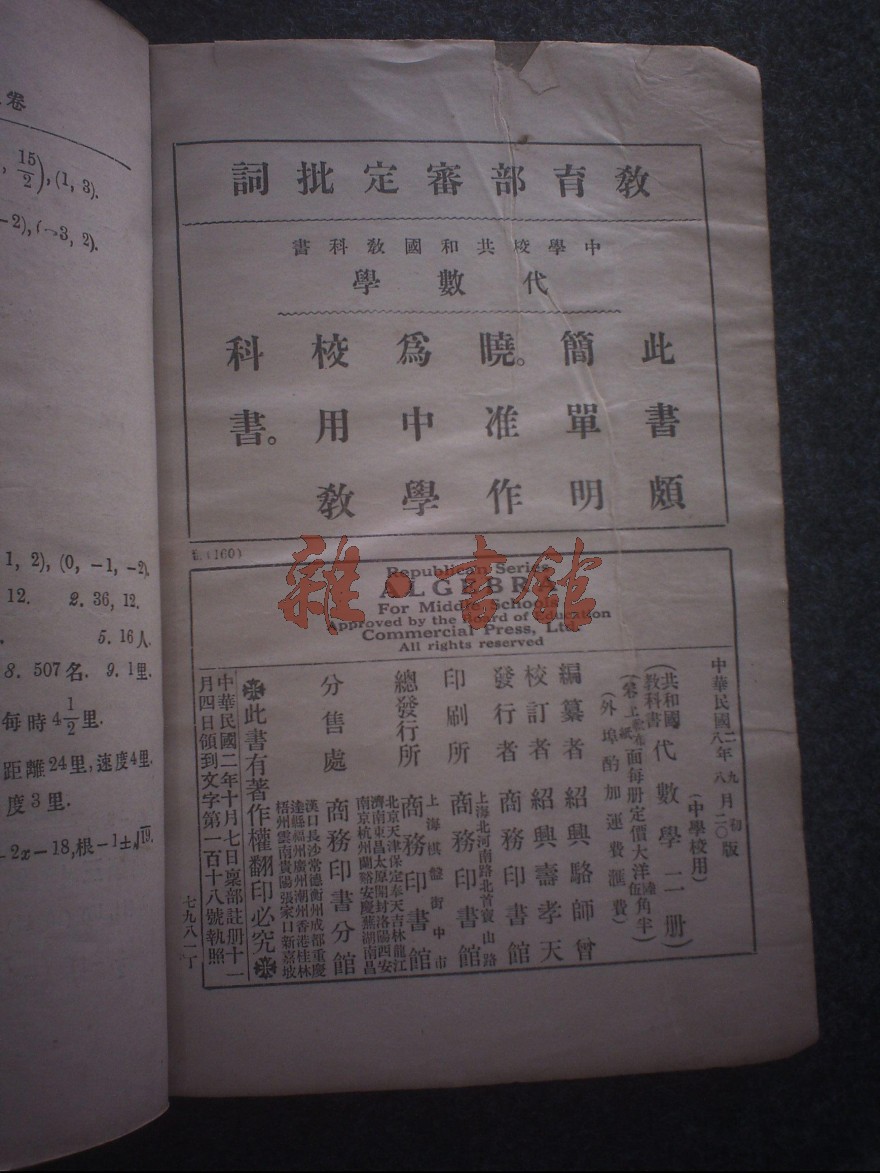 卷
15/2), (1, 3).
-2), (-3, 2).
1, 2), (0, -1, -2).
12. 2. 36, 12.
5. 16人.
8. 507名. 9. 1里.
每時4 1/2里.
距離24里, 速度4里.
度3里.
-2x-18, 根-1±√19.
教育部審定批詞
中學校共和國教科書
代數學
此書頗
簡單明
曉。准作
爲中學
校用教
科書。
(160)
Republican Series
ALGEBRA
For Middle Schools
Approved by the Board of Education
Commercial Press, Ltd.
All rights reserved
中華民國二年九月初版
八年八月二〇版
(中學校用)
共和國教科書
代數學二册
面每册定價大洋伍角半
(外埠酌加運費滙費)
編纂者 紹興駱師曾
校訂者 紹興壽孝天
發行者 商務印書館
印刷所 上海北河南路北首寶山路 商務印書館
總發行所 上海棋盤街中市 商務印書館
分售處 商務印書分館
北京天津保定奉天吉林龍江
濟南東昌太原開封洛陽西安
南京杭州蘭谿安慶蕪湖南昌
漢口長沙常德衡州成都重慶
達縣福州廣州潮州香港桂林
梧州雲南貴陽張家口新嘉坡
此書有著作權翻印必究
中華民國二年十月七日稟部註册十一
月四日領到文字第一百十八號執照
七九八一丁
雜·書館